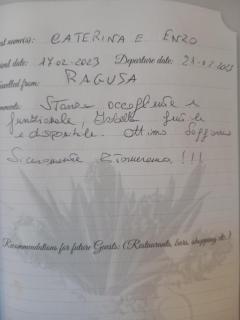 st name(s): CATERINA E ENZO
ival date: 17.02.2023 Departure date: 21.02.2023
avelled from: RAGUSA
mments: Stanza accogliente e
funzionale, Isabella gentile
e disponibile. Ottimo soggiorno
Sicuramente Ritorneremo!!!
Recommendations for future Guests: (Restaurants, bars, shopping etc.)